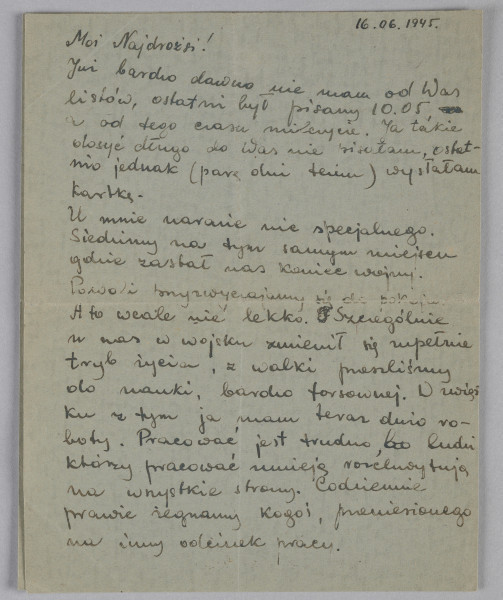 16.06.1945.
Moi Najdrożsi!
Już bardzo dawno nie mam od Was
listów, ostatni był pisany 10.05
a od tego czasu milczycie. Ja także
dosyć długo do Was nie pisałam, ostat-
nio jednak (parę dni temu) wysłałam
kartkę.
U mnie narazie nic specjalnego.
Siedzimy na tym samym miejscu
gdzie zastał nas koniec wojny.
Powoli przyzwyczajamy się do pokoju.
A to wcale nie lekko. Szczególnie
u nas w wojsku zmienił się zupełnie
tryb życia, z walki przeszliśmy
do nauki, bardzo forsownej. W związ-
ku z tym ja mam teraz dużo ro-
boty. Pracować jest trudno, bo ludzi
którzy pracować umieją rozchwytują
na wszystkie strony. Codziennie
prawie żegnamy kogoś, przeniesionego
na inny odcinek pracy.